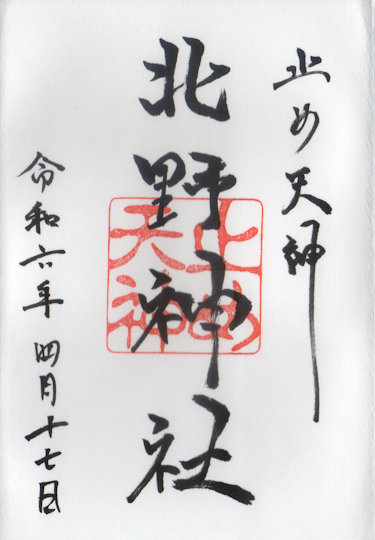 止め天神
北野神社
止め
天神
令和六年 四月十七日